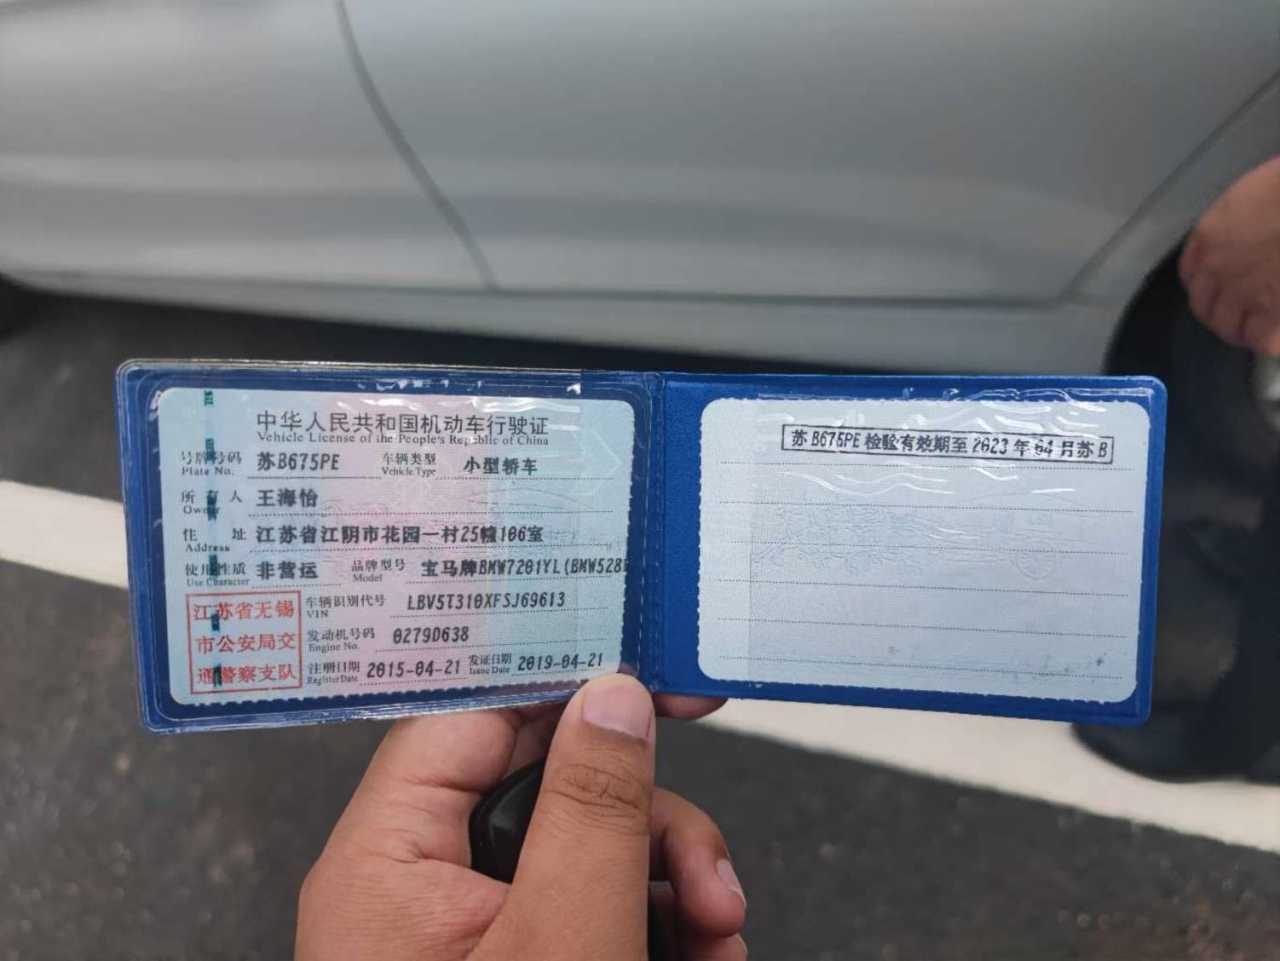 中华人民共和国机动车行驶证
Vehicle License of the People's Republic of China
号牌号码 苏B675PE 车辆类型 小型轿车
Plate No. Vehicle Type
所有人 王海怡
Owner
住址 江苏省江阴市花园一村25幢106室
Address
使用性质 非营运 品牌型号 宝马牌BMW7201YL(BMW528
Use Character Model
江苏省无锡
市公安局交
通警察支队
车辆识别代号 LBV5T310XFSJ69613
VIN
发动机号码 0279D638
Engine No.
注册日期 2015-04-21 发证日期 2019-04-21
Register Date Issue Date
苏B675PE 检验有效期至 2023 年 04 月苏 B